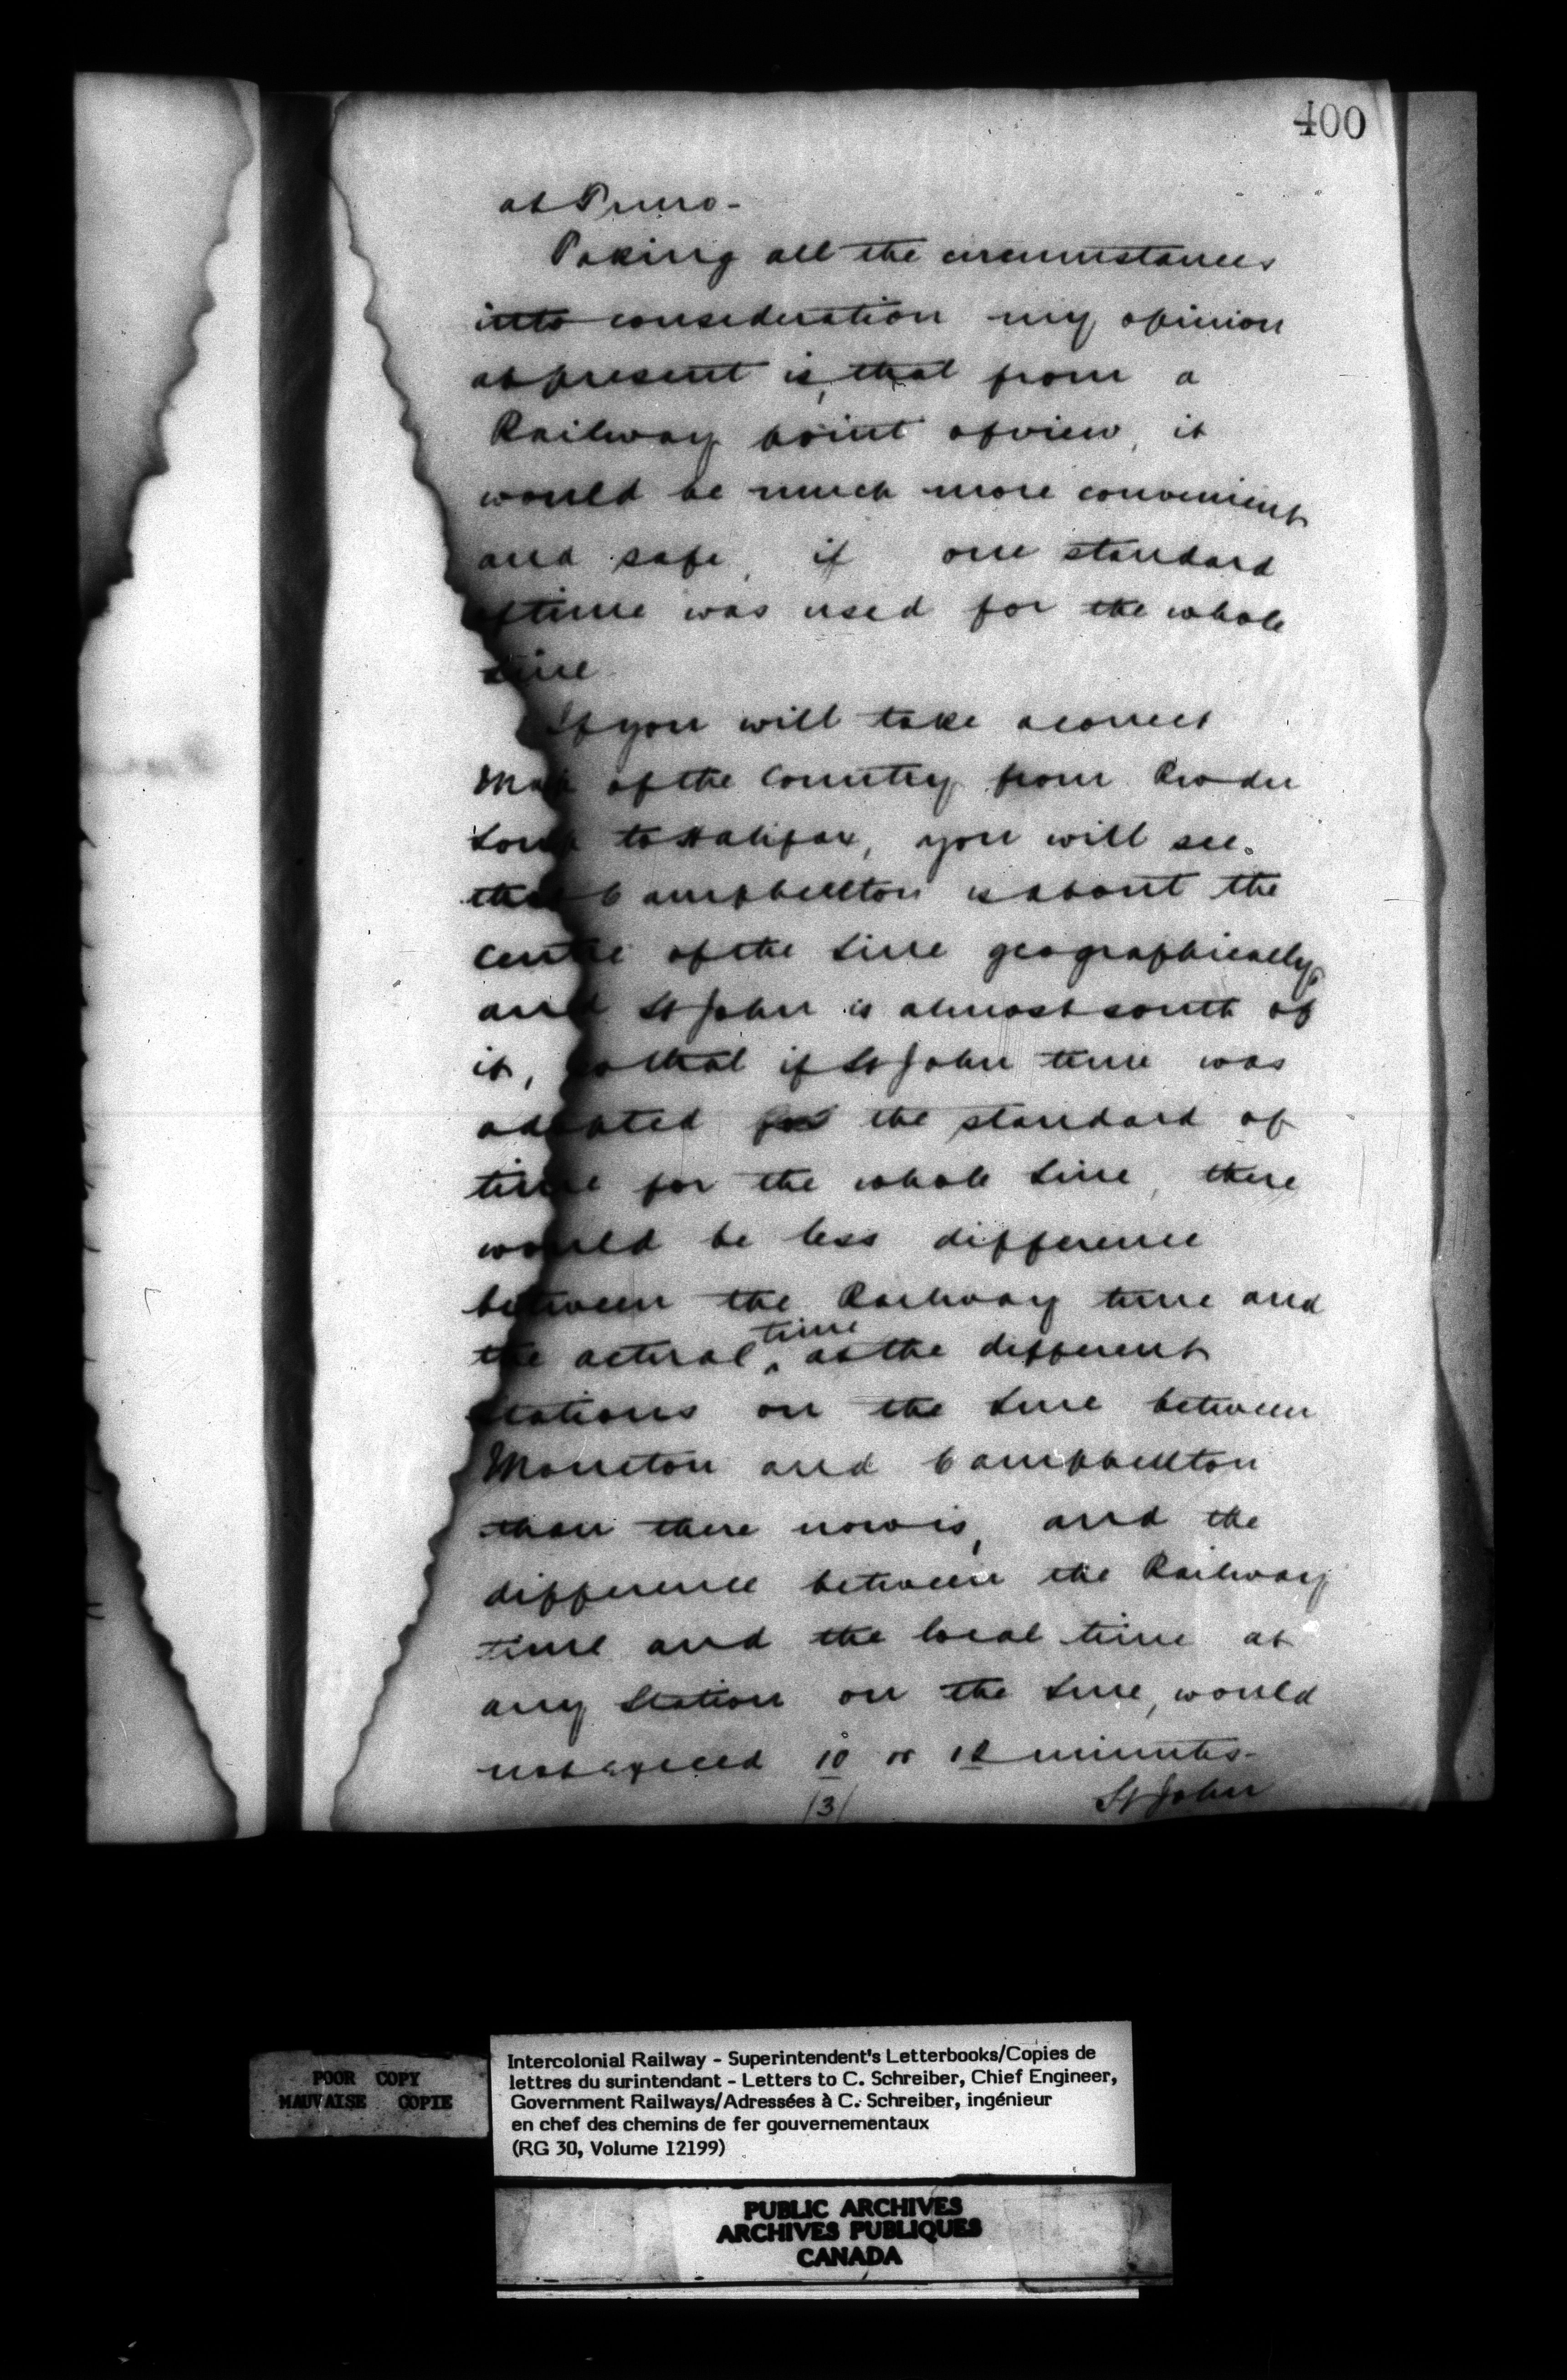 400
at Truro-
Taking all the circumstances
into consideration my opinion
at present is, that from a
Railway point of view, it
would be much more convenient
and safe, if one standard
of time was used for the whole
Line
If you will take a correct
Map of the Country from River du
Loup to Halifax, you will see.
that Campbellton is about the
centre of the Line geographically,
and St John is almost south of
it, so that if St John time was
adopted for the standard of
time for the whole Line, there
would be less difference
between the Railway time and
the actual ^time at the different
Stations on the Line between
Moncton and Campbellton
than there now is, and the
difference between the Railway
time and the local time at
any Station on the Line, would
not exceed 10 or 12 minutes-
/3/ St John
POOR COPY
MAUVAISE COPIE
Intercolonial Railway - Superintendent's Letterbooks/Copies de
lettres du surintendant - Letters to C. Schreiber, Chief Engineer,
Government Railways/Adressées à C. Schreiber, ingénieur
en chef des chemins de fer gouvernementaux
(RG 30, Volume 12199)
PUBLIC ARCHIVES
ARCHIVES PUBLIQUES
CANADA